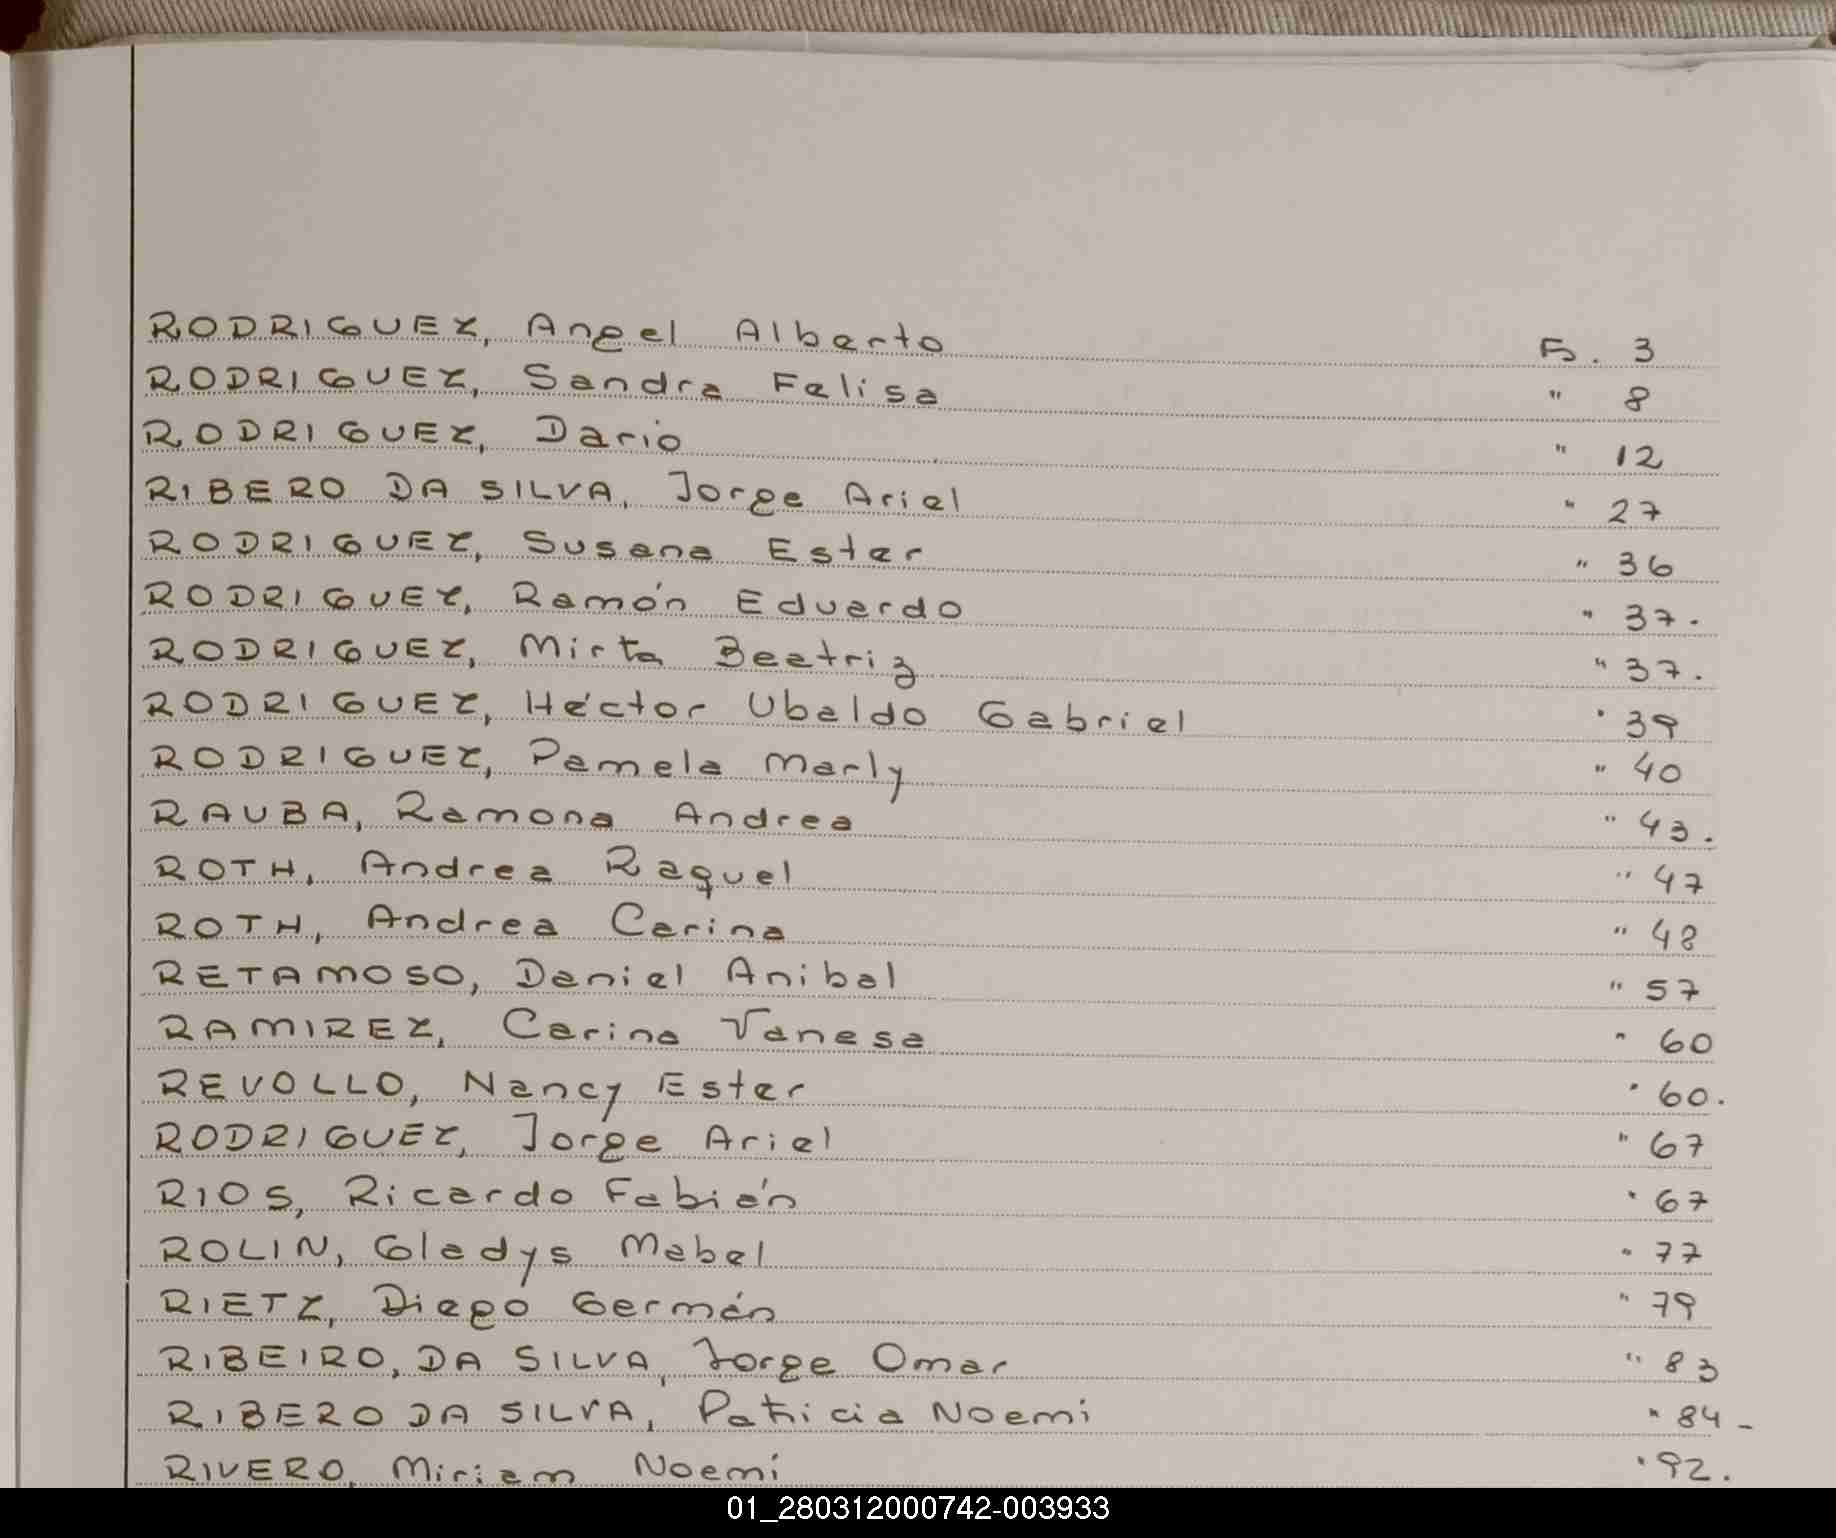 RODRIGUEZ, Angel Alberto Fs. 3
RODRIGUEZ, Sandra Felisa " 8
RODRIGUEZ, Dario " 12
RIBERO DA SILVA, Jorge Ariel " 27
RODRIGUEZ, Susana Ester " 36
RODRIGUEZ, Ramón Eduardo " 37.
RODRIGUEZ, Mirta Beatriz " 37.
RODRIGUEZ, Héctor Ubaldo Gabriel " 39
RODRIGUEZ, Pamela Marly " 40
RAUBA, Ramona Andrea " 43.
ROTH, Andrea Raquel " 47
ROTH, Andrea Carina " 48
RETAMOSO, Daniel Anibal " 57
RAMIREZ, Carina Vanesa " 60
REVOLLO, Nancy Ester " 60.
RODRIGUEZ, Jorge Ariel " 67
RIOS, Ricardo Fabián " 67
ROLIN, Gladys Mabel " 77
RIETZ, Diego Germán " 79
RIBEIRO, DA SILVA, Jorge Omar " 83
RIBERO DA SILVA, Patricia Noemi " 84-
RIVERO, Miriam Noemí " 92.
01_280312000742-003933